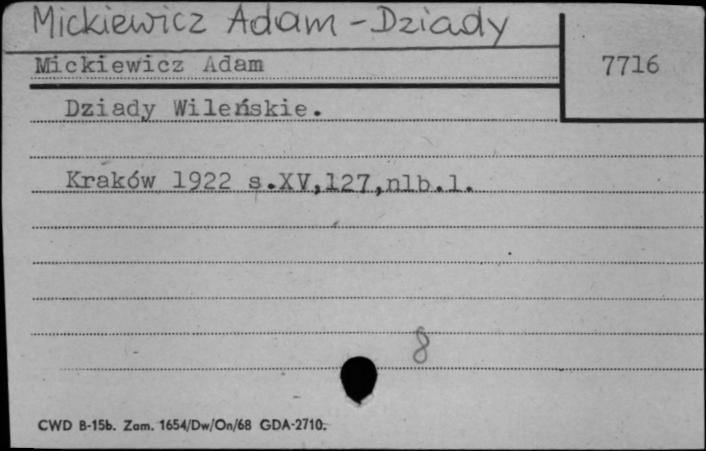 Mickiewicz Adam - Dziady
Mickiewicz Adam
7716
Dziady Wileńskie.
Kraków 1922 s.XV,127,nlb.1.
8
CWD B-15b. Zam. 1654/Dw/On/68 GDA-2710.